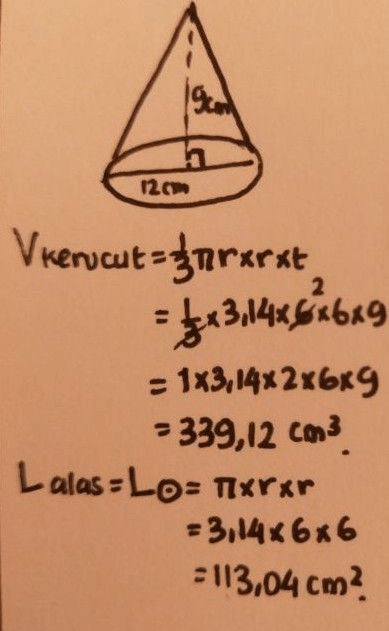 9cm
12cm
Vkerucut = 1/3 πr×r×t
= 1/3 × 3,14 × 6 2 × 6 × 9
= 1 × 3,14 × 2 × 6 × 9
= 339,12 cm³.
Lalas = L⊙ = π×r×r
= 3,14 × 6 × 6
= 113,04 cm².